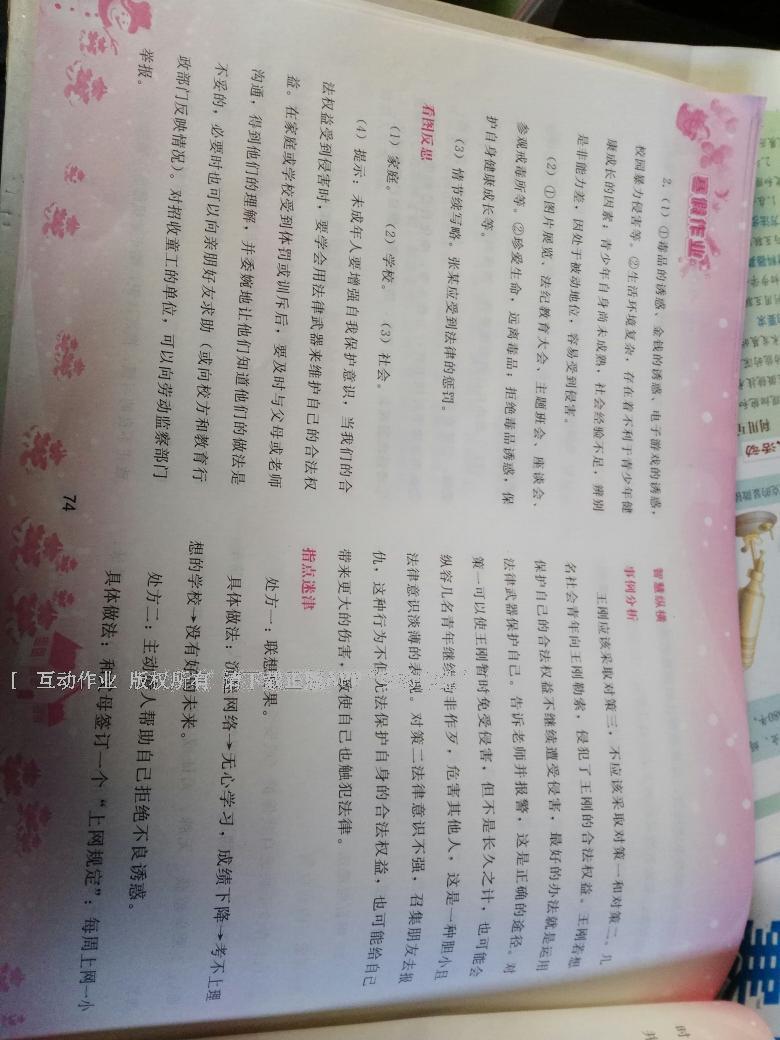 寒假作业
2. (1) ①毒品的诱惑、金钱的诱惑、电子游戏的诱惑,
校园暴力侵害等。②生活环境复杂,存在着不利于青少年健
康成长的因素;青少年自身尚未成熟,社会经验不足,辨别
是非能力差,因处于被动地位,容易受到侵害。
(2) ①图片展览、法纪教育大会、主题班会、座谈会、
参观戒毒所等。②珍爱生命,远离毒品;拒绝毒品诱惑,保
护自身健康成长等。
(3) 情节续写略。张某应受到法律的惩罚。
看图反思
(1) 家庭。 (2) 学校。 (3) 社会。
(4) 提示:未成年人要增强自我保护意识,当我们的合
法权益受到侵害时,要学会用法律武器来维护自己的合法权
益。在家庭或学校受到体罚或训斥后,要及时与父母或老师
沟通,得到他们的理解,并委婉地让他们知道他们的做法是
不妥的,必要时也可以向亲朋好友求助(或向校方和教育行
政部门反映情况)。对招收童工的单位,可以向劳动监察部门
举报。
智慧纵横
事例分析
王刚应该采取对策三,不应该采取对策一和对策二。几
名社会青年向王刚勒索,侵犯了王刚的合法权益。王刚若想
保护自己的合法权益不继续遭受侵害,最好的办法就是运用
法律武器保护自己。告诉老师并报警,这是正确的途径。对
策一可以使王刚暂时免受侵害,但不是长久之计,也可能会
纵容几名青年继续为非作歹,危害其他人,这是一种胆小且
法律意识淡薄的表现。对策二法律意识不强,召集朋友去报
仇,这种行为不但无法保护自身的合法权益,也可能给自己
带来更大的伤害,致使自己也触犯法律。
指点迷津
处方一:联想 果。
具体做法:沉 网络→无心学习,成绩下降→考不上理
想的学校→没有好的未来。
处方二:主动 人帮助自己拒绝不良诱惑。
具体做法:和 母签订一个“上网规定”:每周上网一小
74
[ 互动作业 版权所有 请下载正版